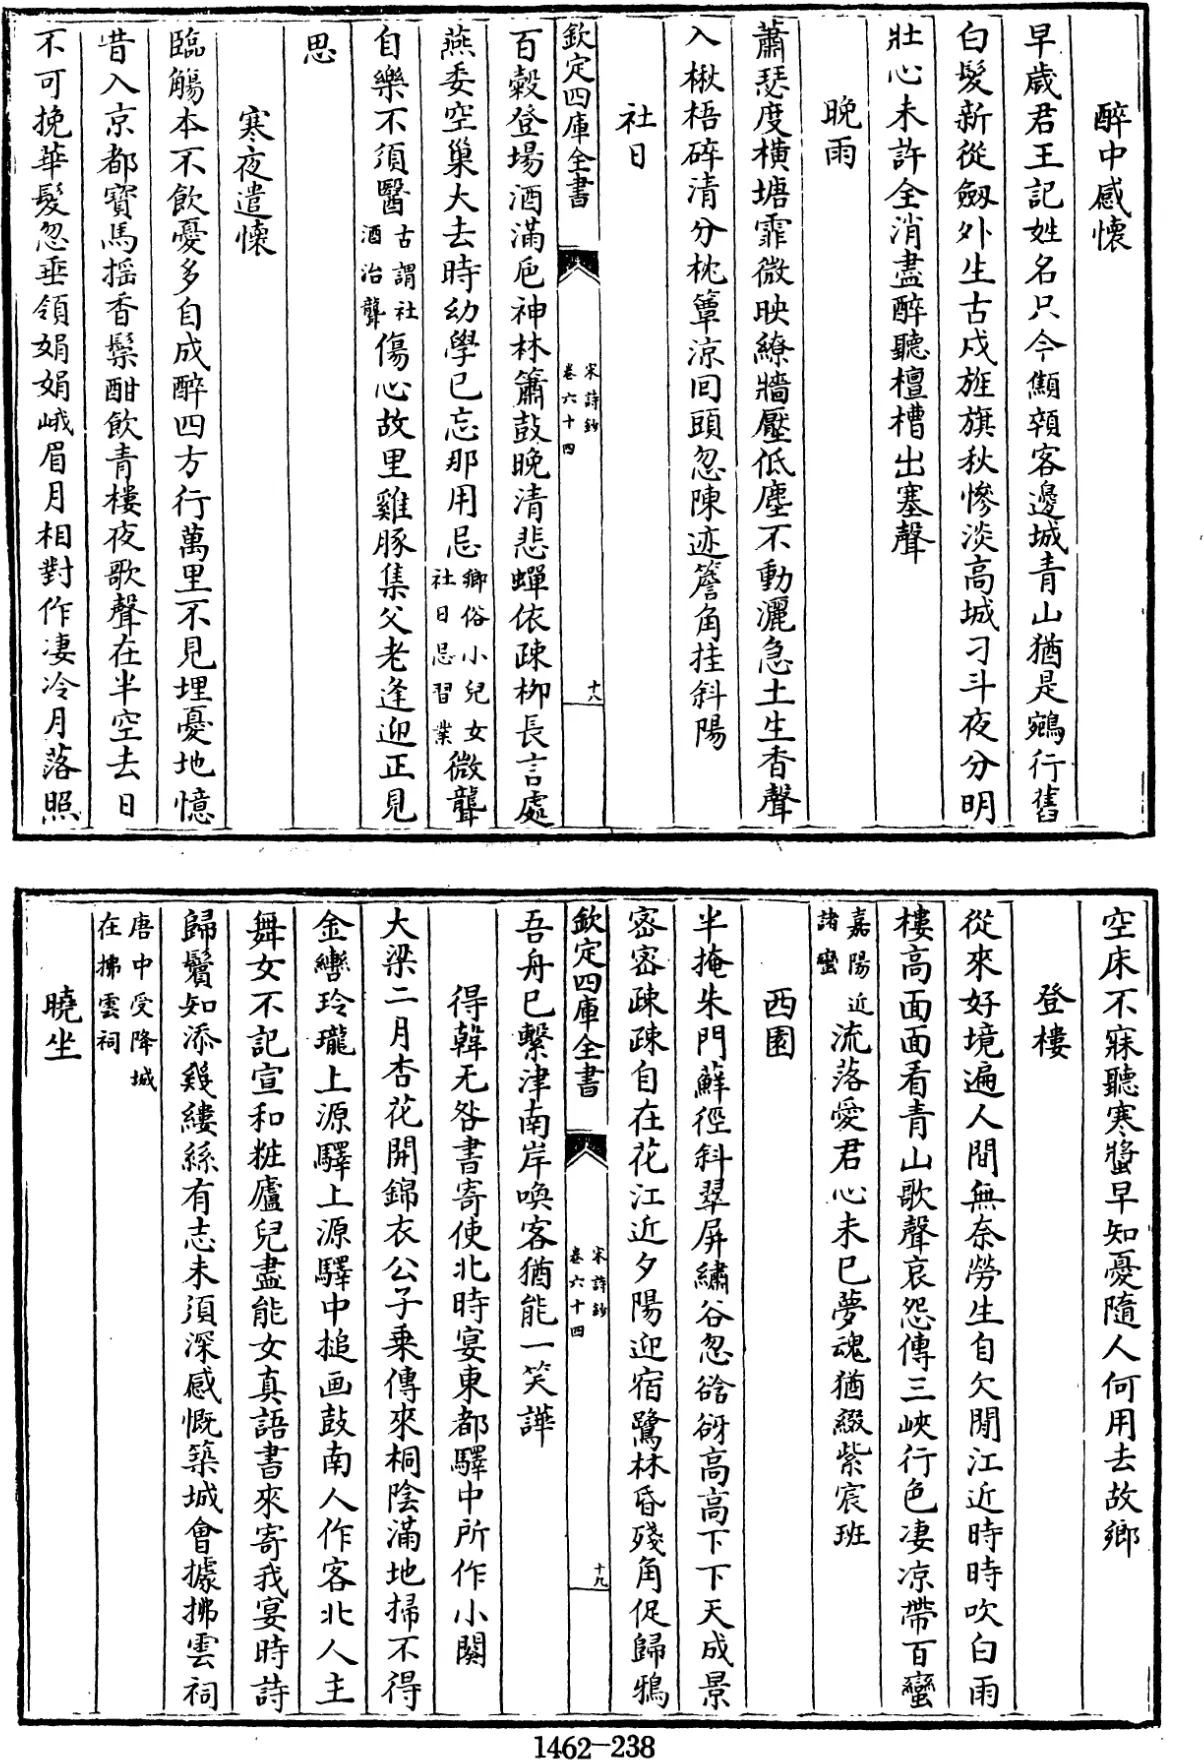 醉中感懷
早歲君王記姓名只今顦顇客邊城青山猶是鵷行舊
白髮新從劔外生古戍旌旗秋慘淡高城刁斗夜分明
壯心未許全消盡醉聽檀槽出塞聲
晚雨
蕭瑟度橫塘霏微映繚牆壓低塵不動灑急土生香聲
入楸梧碎清分枕簟涼回頭忽陳迹簷角挂斜陽
社日
欽定四庫全書
宋詩鈔
卷六十四
十八
百穀登場酒滿巵神林簫鼓晚清悲蟬依疎柳長言處
燕委空巢大去時幼學已忘那用忌鄉俗小兒女社日忌習業微聾
自樂不須醫古謂社酒治聾傷心故里雞豚集父老逢迎正見
思
寒夜遣懷
臨觴本不飲憂多自成醉四方行萬里不見埋憂地憶
昔入京都寶馬揺香鬃酣飲青樓夜歌聲在半空去日
不可挽華髮忽垂領娟娟峨眉月相對作凄冷月落照
空床不寐聽寒螿早知憂隨人何用去故鄉
登樓
從來好境遍人間無奈勞生自欠閒江近時時吹白雨
樓高面面看青山歌聲哀怨傳三峽行色凄凉帶百蠻
嘉陽近諸蠻流落愛君心未已夢魂猶綴紫宸班
西園
半掩朱門蘚徑斜翠屏繡谷忽谽谺高高下下天成景
密密疎疎自在花江近夕陽迎宿鷺林昏殘角促歸鴉
欽定四庫全書
宋詩鈔
卷六十四
十九
吾舟已繫津南岸喚客猶能一笑譁
得韓无咎書寄使北時宴東都驛中所作小闋
大梁二月杏花開錦衣公子乗傳來桐陰滿地掃不得
金轡玲瓏上源驛上源驛中搥画鼓南人作客北人主
舞女不記宣和粧廬兒盡能女真語書來寄我宴時詩
歸鬢知添幾縷絲有志未須深感慨築城會據拂雲祠
唐中受降城在拂雲祠
曉坐
1462-238